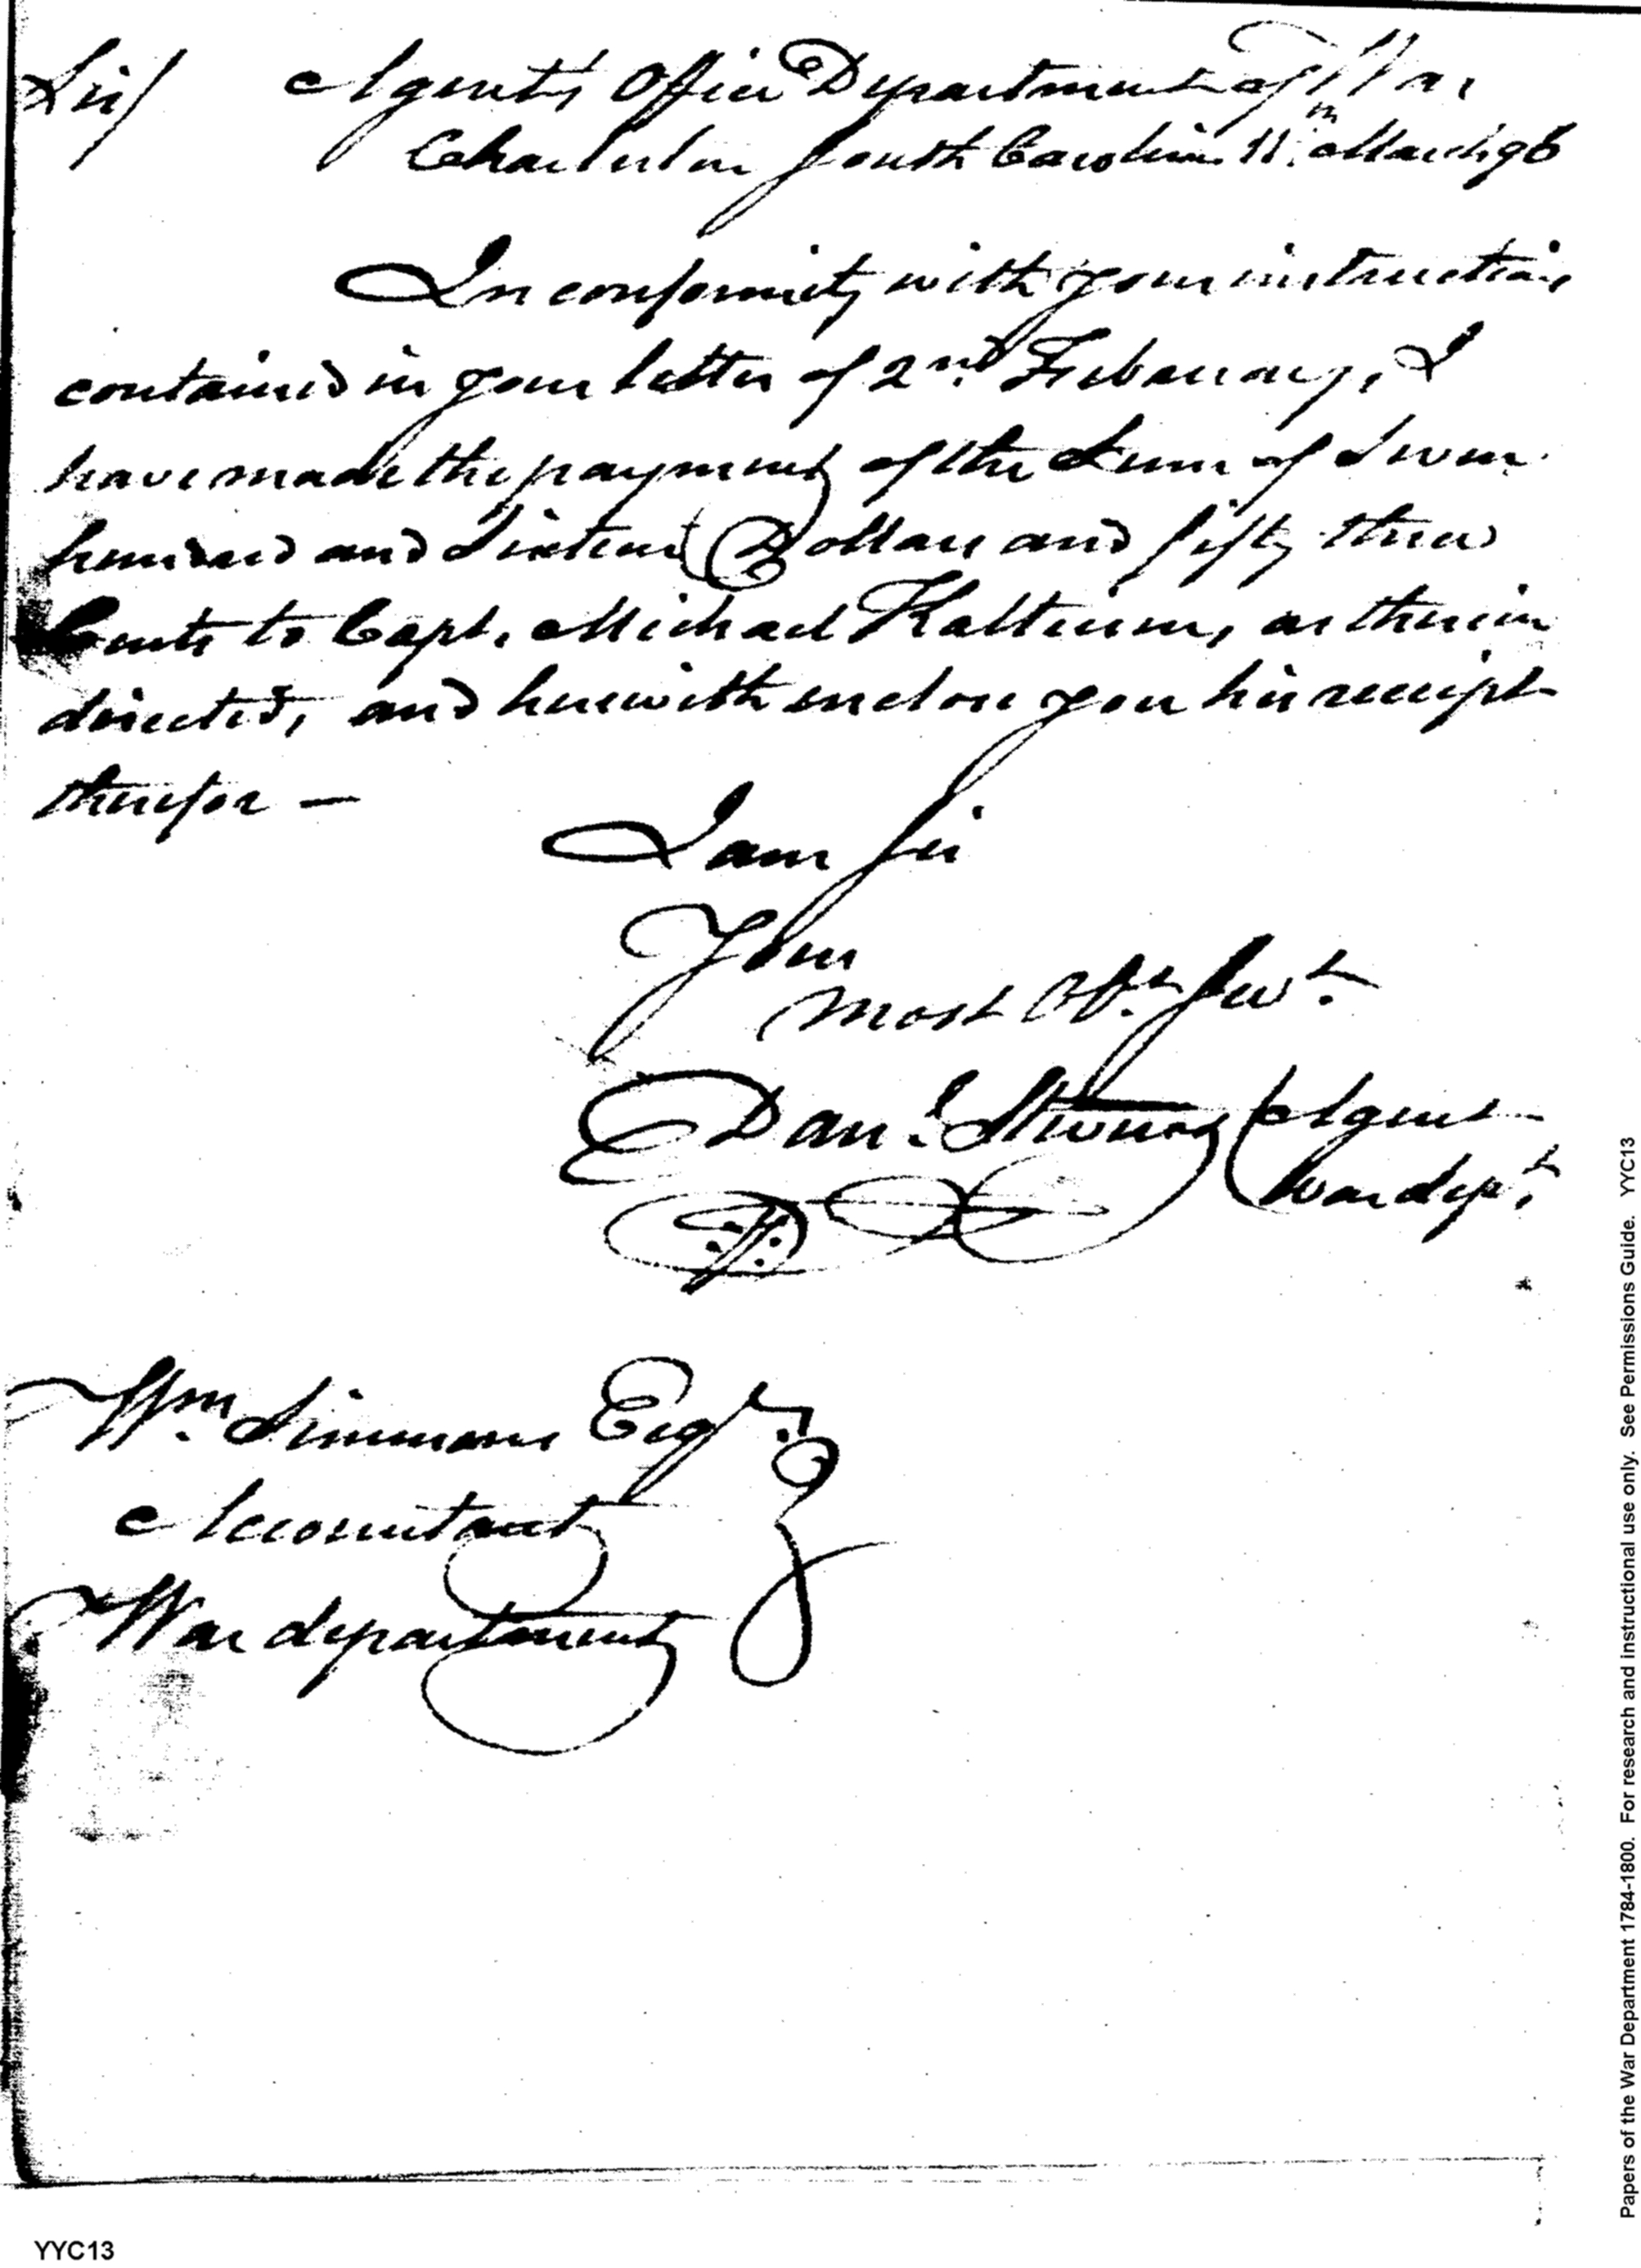 Sir/ Agents Office Department of War
Charleston South Carolina 11.th March 96
In conformity with your instructions
contained in your letter of 2nd. Febuary, I
have made the payment of the Sum of Seven
hundred and Sixteen Dollars and fifty three
Cents to Capt. Michael Kalteisen, as therein
directed, and herewith enclose you his receipt
therefor —
I am Sir
Your
most Obt. Servt.
Danl. Stevens Agent
War dept.
Wm. Simmons Esqr.
Accountant
War department
YYC13
Papers of the War Department 1784-1800. For research and instructional use only. See Permissions Guide. YYC13